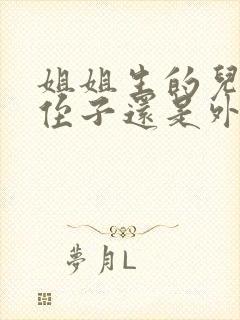 姐姐生的兒
侄子還是外
夢月L